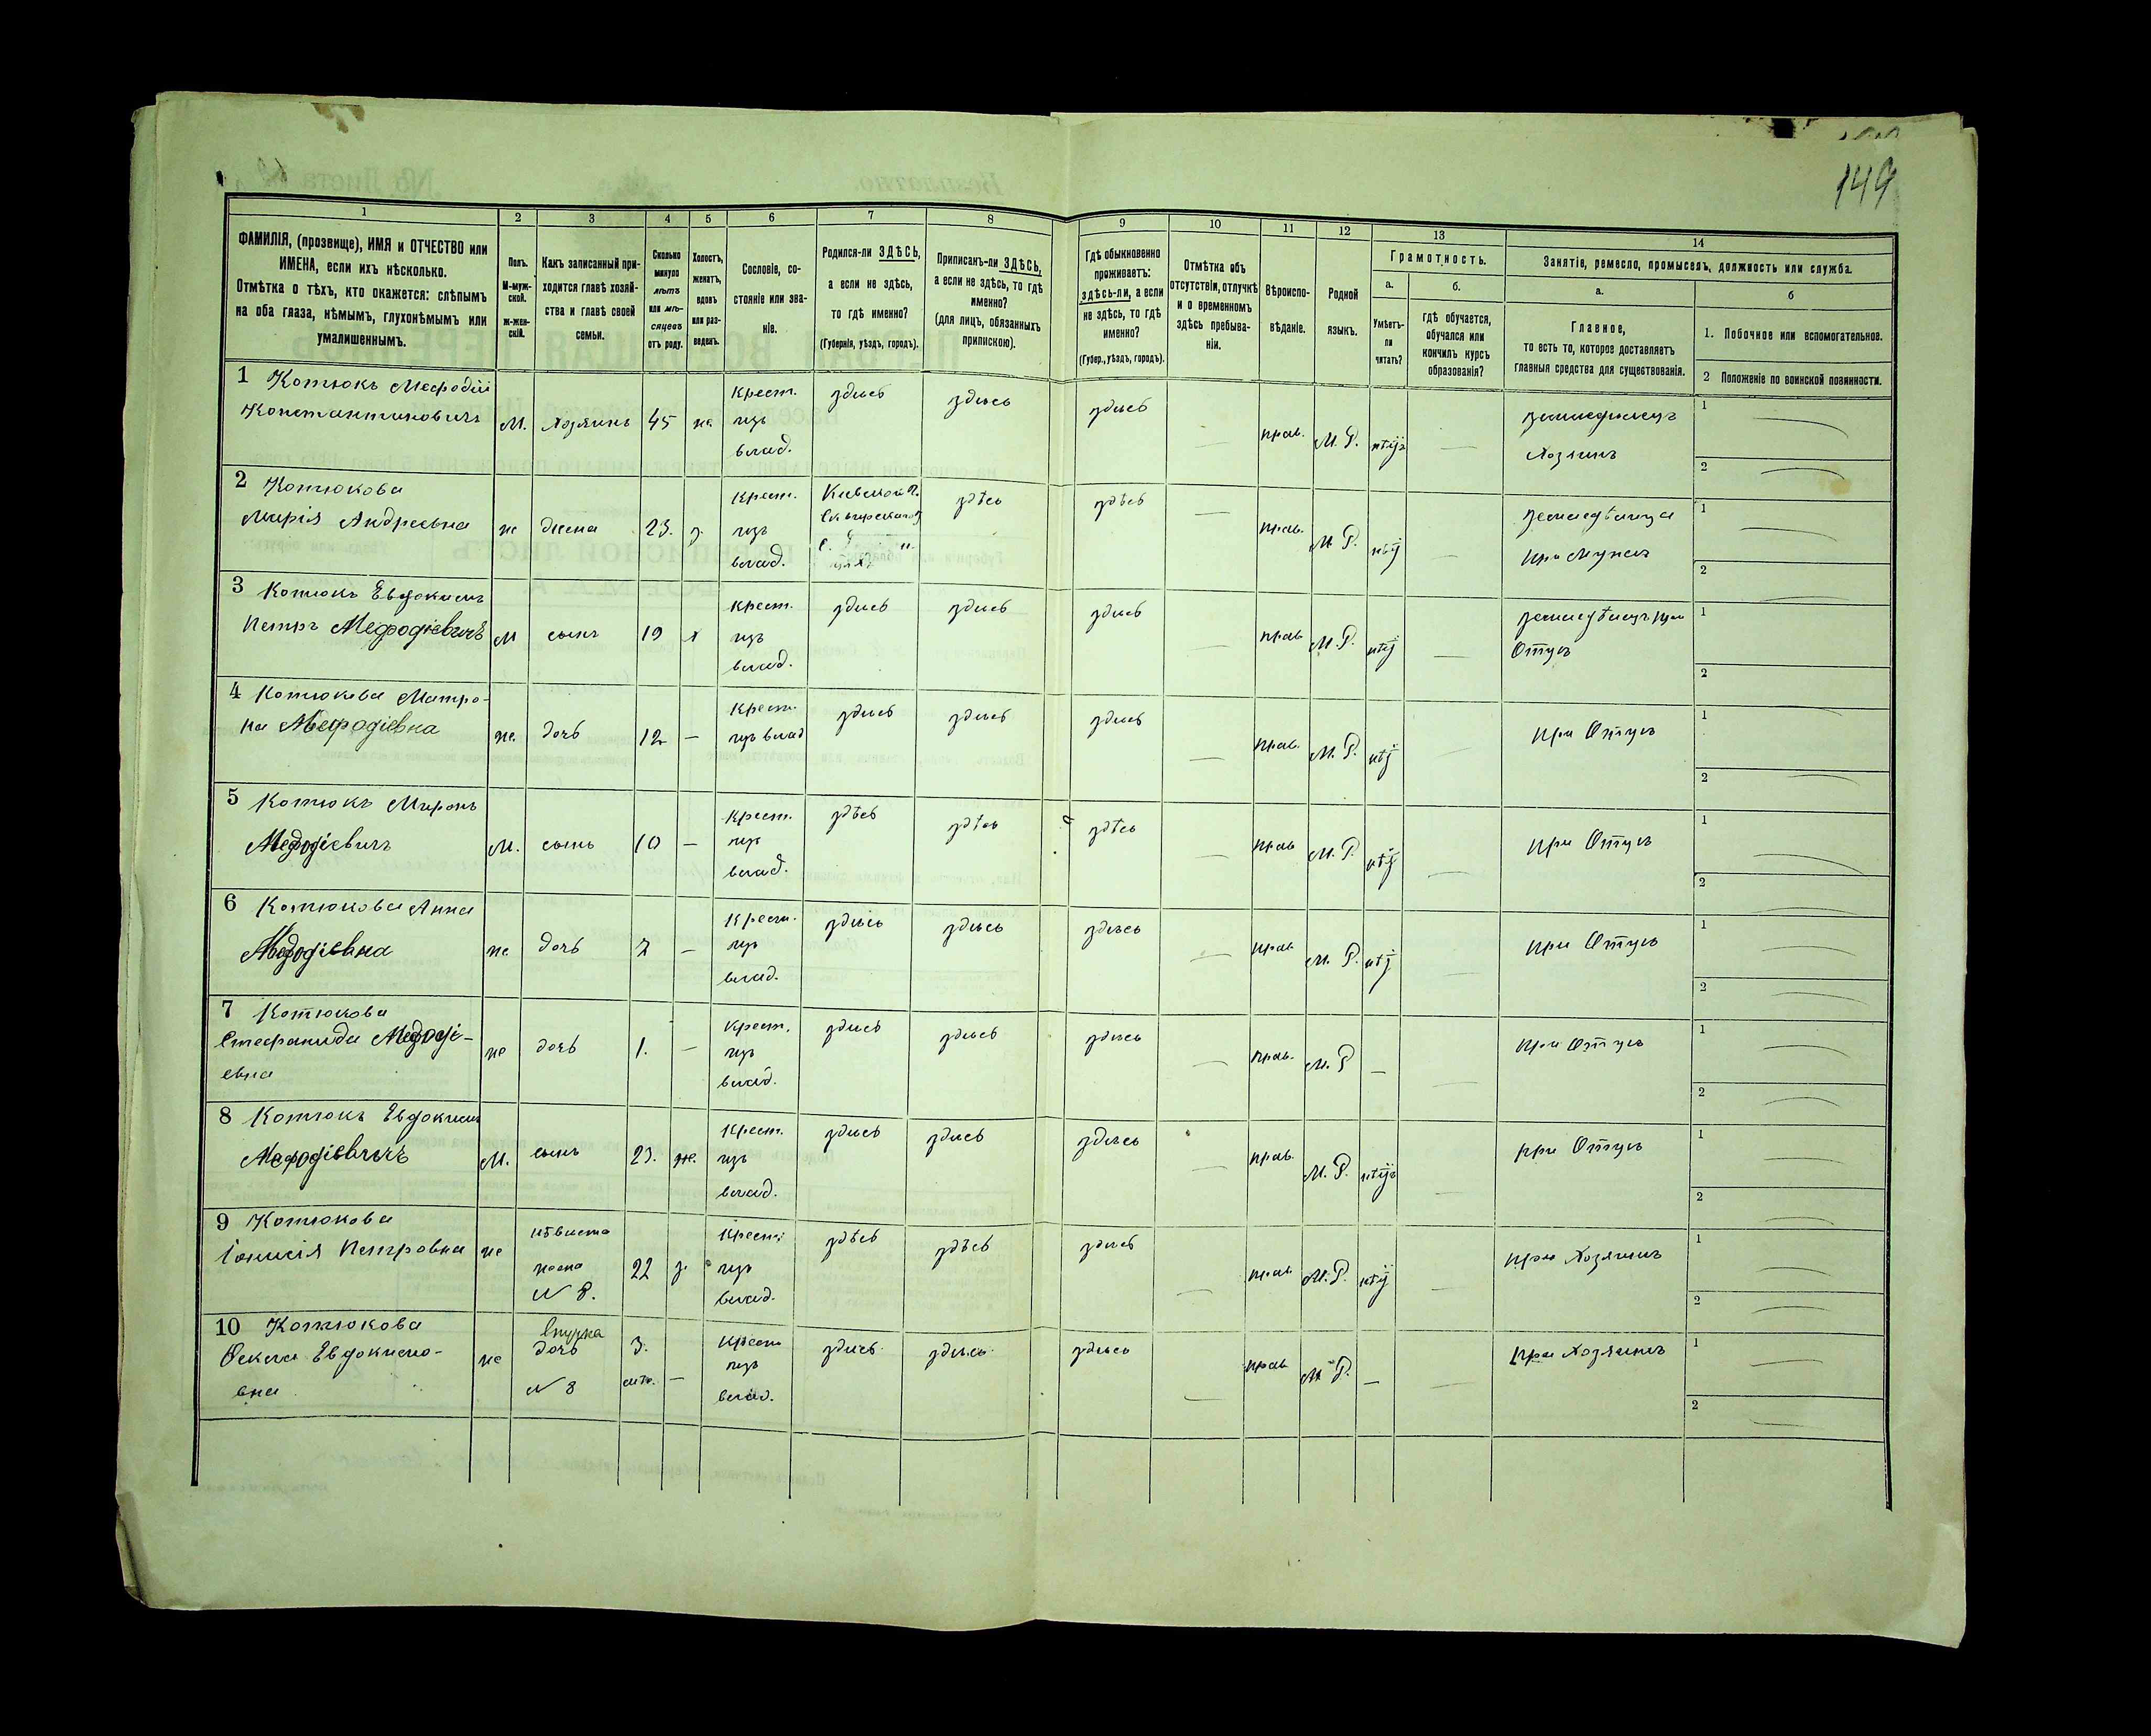 149
1 2 3 4 5 6 7 8 9 10 11 12 13 14
ФАМИЛІЯ, (прозвище), ИМЯ и ОТЧЕСТВО или
ИМЕНА, если ихъ нѣсколько.
Отмѣтка о тѣхъ, кто окажется: слѣпымъ
на оба глаза, нѣмымъ, глухонѣмымъ или
умалишеннымъ.
Полъ.
М-муж-
ской.
Ж-жен-
скій.
Какъ записанный при-
ходится главѣ хозяй-
ства и главѣ своей
семьи.
Сколько
минуло
лѣтъ
или мѣ-
сяцевъ
отъ роду.
Холостъ,
женатъ,
вдовъ
или раз-
веденъ.
Сословіе, со-
стояніе или зва-
ніе.
Родился-ли ЗДѢСЬ,
а если не здѣсь,
то гдѣ именно?
(Губернія, уѣздъ, городъ).
Приписанъ-ли ЗДѢСЬ,
а если не здѣсь, то гдѣ
именно?
(для лицъ, обязанныхъ
припискою).
Гдѣ обыкновенно
проживаетъ:
здѣсь-ли, а если
не здѣсь, то гдѣ
именно?
(Губер., уѣздъ, городъ).
Отмѣтка объ
отсутствіи, отлучкѣ
и о временномъ
здѣсь пребыва-
ніи.
Вѣроиспо-
вѣданіе.
Родной
языкъ.
Грамотность.
а.
Умѣетъ-
ли
читать?
б.
гдѣ обучается,
обучался или
кончилъ курсъ
образованія?
Занятіе, ремесло, промыселъ, должность или служба.
а.
Главное,
то есть то, которое доставляетъ
главныя средства для существованія.
б
1. Побочное или вспомогательное.
2 Положеніе по воинской повинности.
1 Котюкъ Мефодій
Константиновичъ М. Хозяинъ 45 же. Крест. изъ влад. здѣсь здѣсь здѣсь — прав. М. Р. нѣтъ — земледѣлецъ Хозяинъ 1 — 2 —
2 Котюкова
Марія Андреевна ж жена 23. з. Крест. изъ влад. Кіевской Г. здѣсь здѣсь — прав. М. Р. нѣтъ — земледѣлица при Мужѣ 1 — 2 —
3 Котюкъ Евдокимъ
Петръ Мефодіевичъ М сынъ 19 х Крест. изъ влад. здѣсь здѣсь здѣсь — прав М. Р. нѣтъ — земледѣлецъ при Отцѣ 1 2
4 Котюкова Матро-
на Мефодіевна ж. дочь 12 — Крест. изъ влад здѣсь здѣсь здѣсь — прав. М. Р. нѣтъ — при Отцѣ 1 — 2 —
5 Котюкъ Миронъ
Мефодіевичъ М. сынъ 10 — Крест. изъ влад. здѣсь здѣсь здѣсь — прав М. Р. нѣтъ — при Отцѣ 1 — 2 —
6 Котюкова Анна
Мефодіевна ж дочь 7 — Крест. изъ влад. здѣсь здѣсь здѣсь — прав. М. Р. нѣтъ — при Отцѣ 1 — 2 —
7 Котюкова
Стефанида Мефоді-
евна ж дочь 1. — Крест. изъ влад. здѣсь здѣсь здѣсь — прав. М. Р — — при Отцѣ 1 — 2 —
8 Котюкъ Евдокимъ
Мефодіевичъ М. сынъ 23. же. Крест. изъ влад. здѣсь здѣсь здѣсь — прав. М. Р. нѣтъ — при Отцѣ 1 — 2 —
9 Котюкова
Петровна ж нѣвиста жена № 8. 22 з. Крест. изъ влад. здѣсь здѣсь здѣсь — прав. М. Р. нѣтъ — при Хозяинѣ 1 — 2 —
10 Котюкова
Евдокимо-
вна ж внучка дочь № 8 3. — Крест. изъ влад. здѣсь здѣсь здѣсь — прав М. Р. — — при Хозяинѣ 1 — 2 —